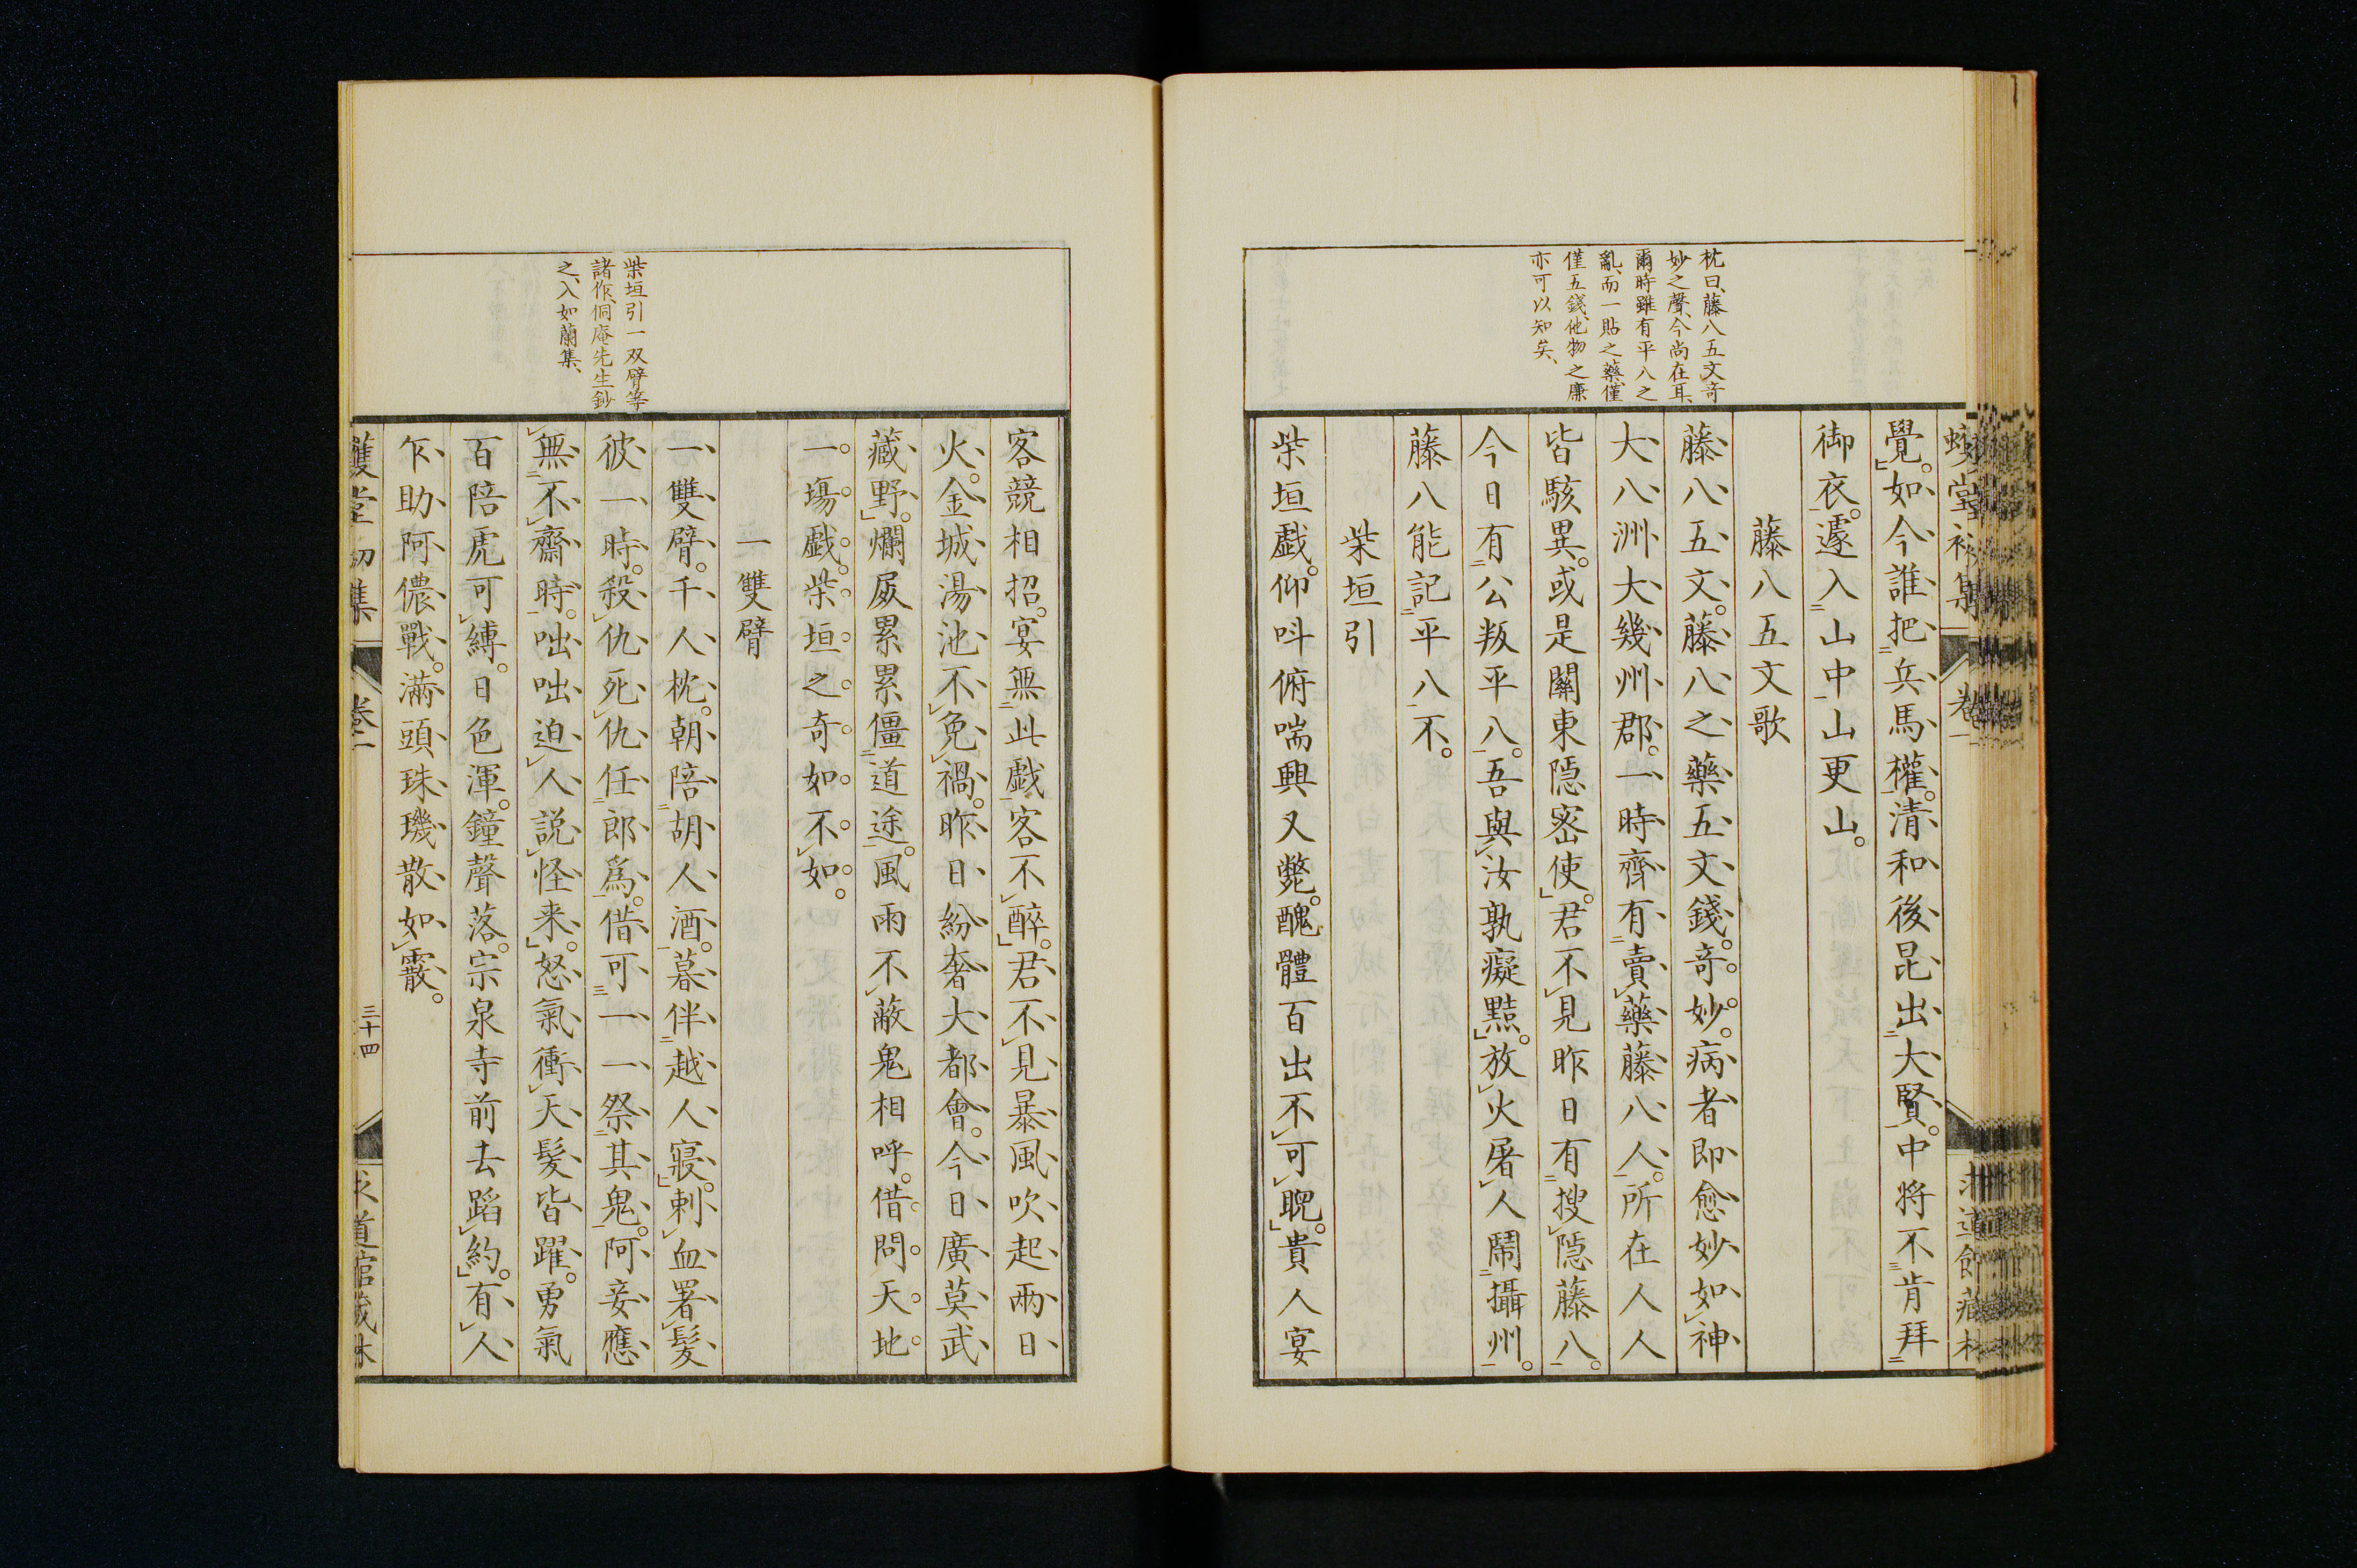 枕曰、藤八五文奇
妙之聲、今尚在耳、
爾時雖有平八之
亂、而一貼之藥、僅
僅五錢、他物之廉
亦可以知矣、
覺。如今誰把兵馬權。清和後昆出大賢。中将不肯拜
御衣。遽入山中山更山。
藤八五文歌
藤八五文。藤八之藥五文錢。奇。妙。病者即愈妙如神
大八洲大幾州郡。一時齊有賣藥藤八人。所在人人
皆駭異。或是關東隠密使。君不見昨日有搜隠藤八。
今日有公叛平八。吾與汝孰癡黠。放火屠人鬧攝州。
藤八能記平八不。
柴垣引
柴垣戯。仰呌俯喘興又斃。醜體百出不可睨。貴人宴
卷一
柴垣引一双臂等
諸作、侗庵先生鈔
之、入如蘭集、
客競相招。宴無此戯客不醉。君不見暴風吹起兩日
火。金城湯池不免禍。昨日紛奢大都會。今日廣莫武
藏野。爛屍累累僵道途。風雨不蔽鬼相呼。借問天地
一塲戯。柴垣之奇如不如。
一雙臂
一雙臂。千人枕。朝陪胡人酒。暮伴越人寢。刺血署髮
彼一時。殺仇死仇任郎爲。借可一一祭其鬼。阿妾應
無不齋時。咄咄迫人説怪来。怒氣衝天髮皆躍。勇氣
百陪虎可縛。日色渾。鐘聲落。宗泉寺前去蹈約。有人
乍助阿儂戰。滿頭珠璣散如霰。
卷一
三十四